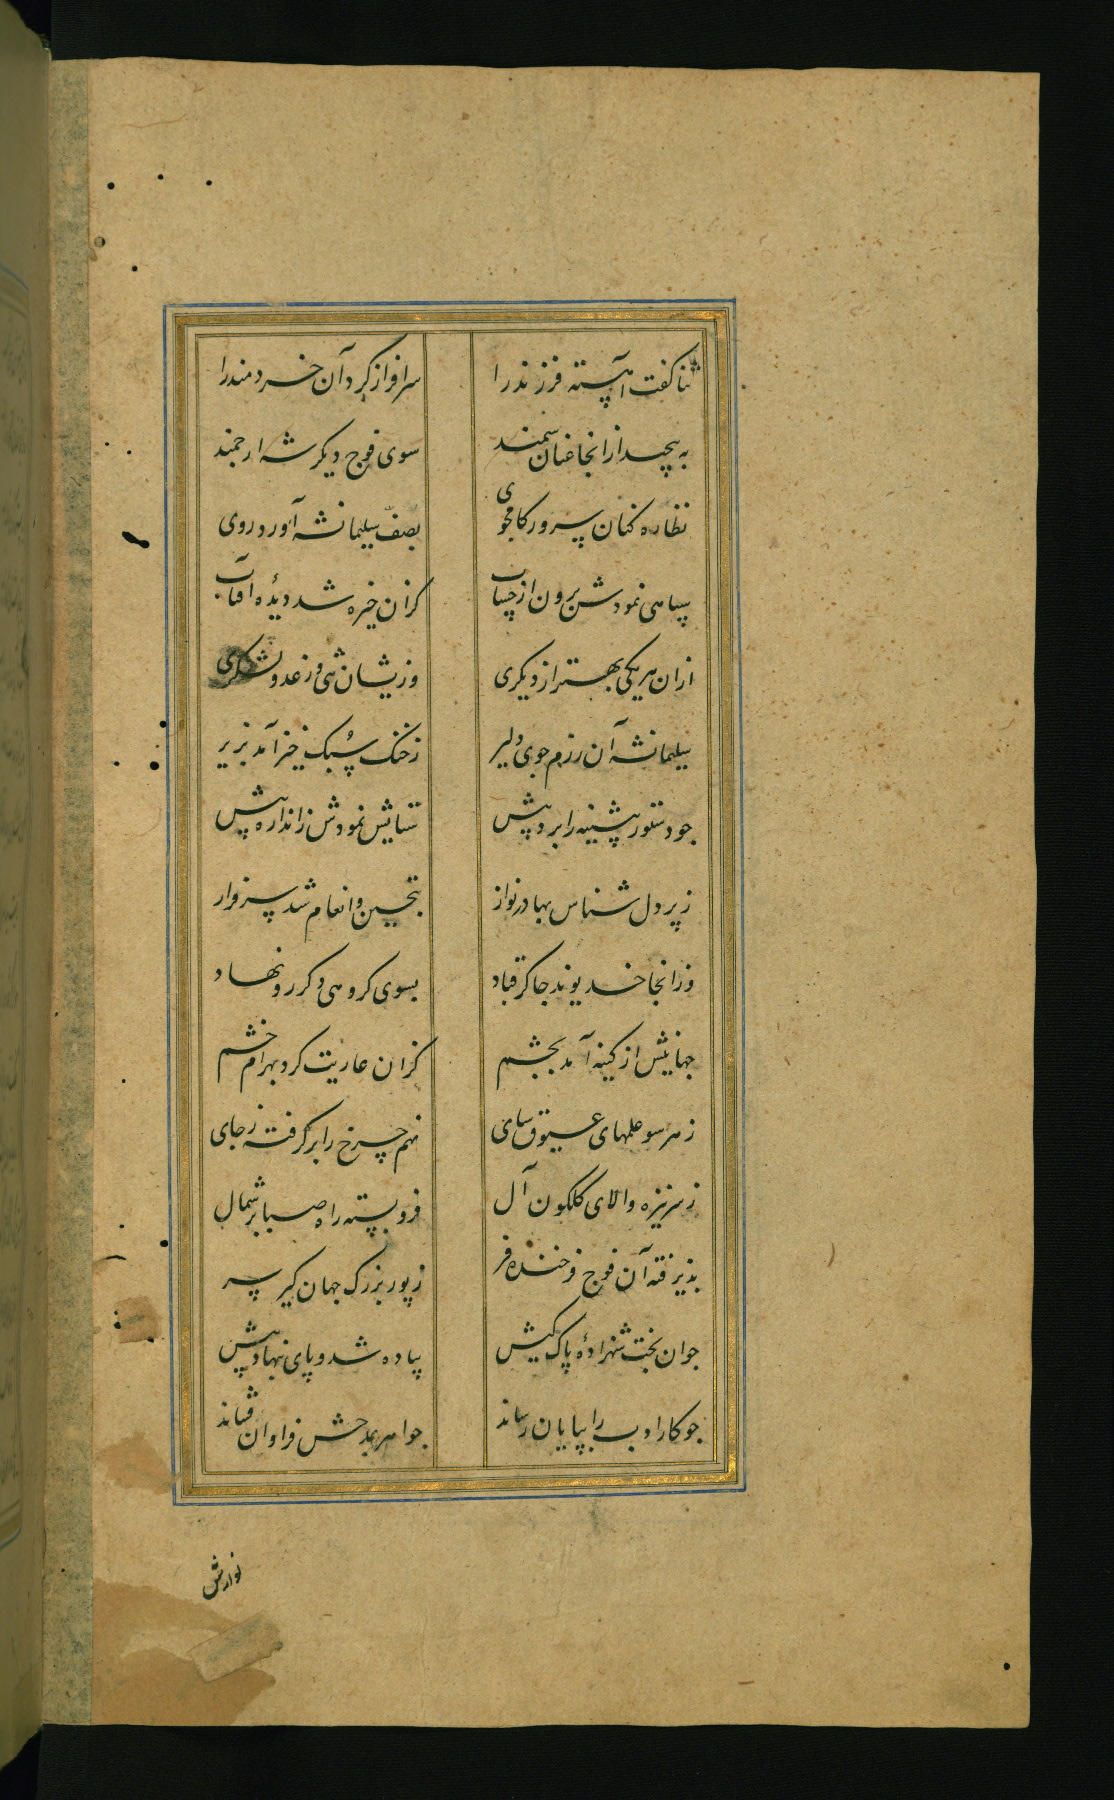 ثنا گفت آهسته فرزند را سرافراز کرد آن خردمند را
به پیچید از آنجا عنان سمند سوی فوج دیگر شه ارجمند
نظاره کنان سرور کامجوی بصف سلیمانشه آورد روی
سپاهی نمودش برون از حساب کزان خیره شد دیدهٔ آفتاب
ازان هر یکی بهتر از دیگری وزیشان تنی وز عدو لشکری
سلیمانشه آن رزم جوی دلیر ز خنگ سبک خیز آمد بزیر
چو دستور پیشینه را برد پیش ستایش نمودش ز اندازه پیش
ز پر دل شناس بهادر نواز بتحسین و انعام شد سرفراز
وز آنجا خدیو ند چاکر قباد بسوی کروهی دکر رو نهاد
جهانیش از کینه آمد بچشم کزان عاریت کرد بهرام خشم
ز هر سو علمهای عیوق سای نهم چرخ را برکرفته ز جای
ز سر نیزه والای کلکون آل فرو بسته راه صبا بر شمال
پذیرفته آن فوج فرخنده فر ز پور بزرک جهان کیر سر
جوان بخت شهزادهٔ پاک کیش پیاده شد و پای ننهاد پیش
چو کار ادب را بپایان رساند جواهر بمدحش فراوان فشاند
نوازش